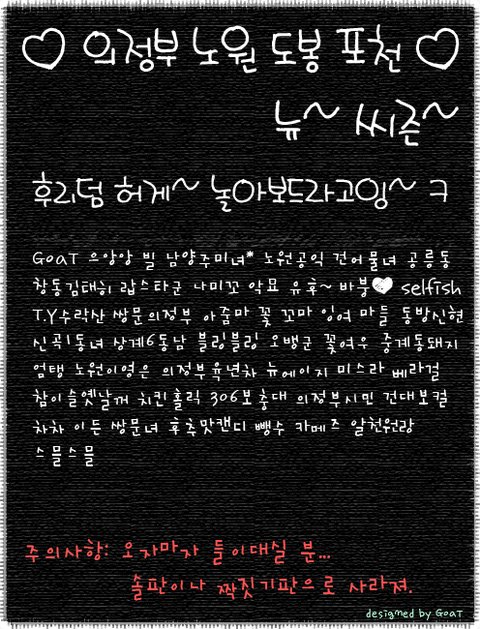 ♡ 의정부 노원 도봉 포천 ♡
뉴~ 씨즌~
후리덤 허게~ 놀아보드라고잉~ ㅋ
GoaT 으앙앙 빌 남양주미녀* 노원공익 건어물녀 공릉동
창동김태희 랍스타군 나미꼬 악묘 유후~ 바붕♥ selfish
T.Y수락산 쌍문의정부 아줌마 꽃 꼬마 잉여 마들 동방신현
신곡1동녀 상계6동남 블링블링 오뱅군 꽃여우 중계동돼지
엄탱 노원이영은 의정부육년차 뉴에이지 미스라 베라걸
참이슬옛날꺼 치킨홀릭 306보충대 의정부시민 건대보컬
차차 이든 쌍문녀 후추맛캔디 뺑수 카메즈 알천원랑
스믈스믈
주의사항: 오자마자 들이대실 분...
솔판이나 짝짓기판으로 사라져.
designed by GoaT